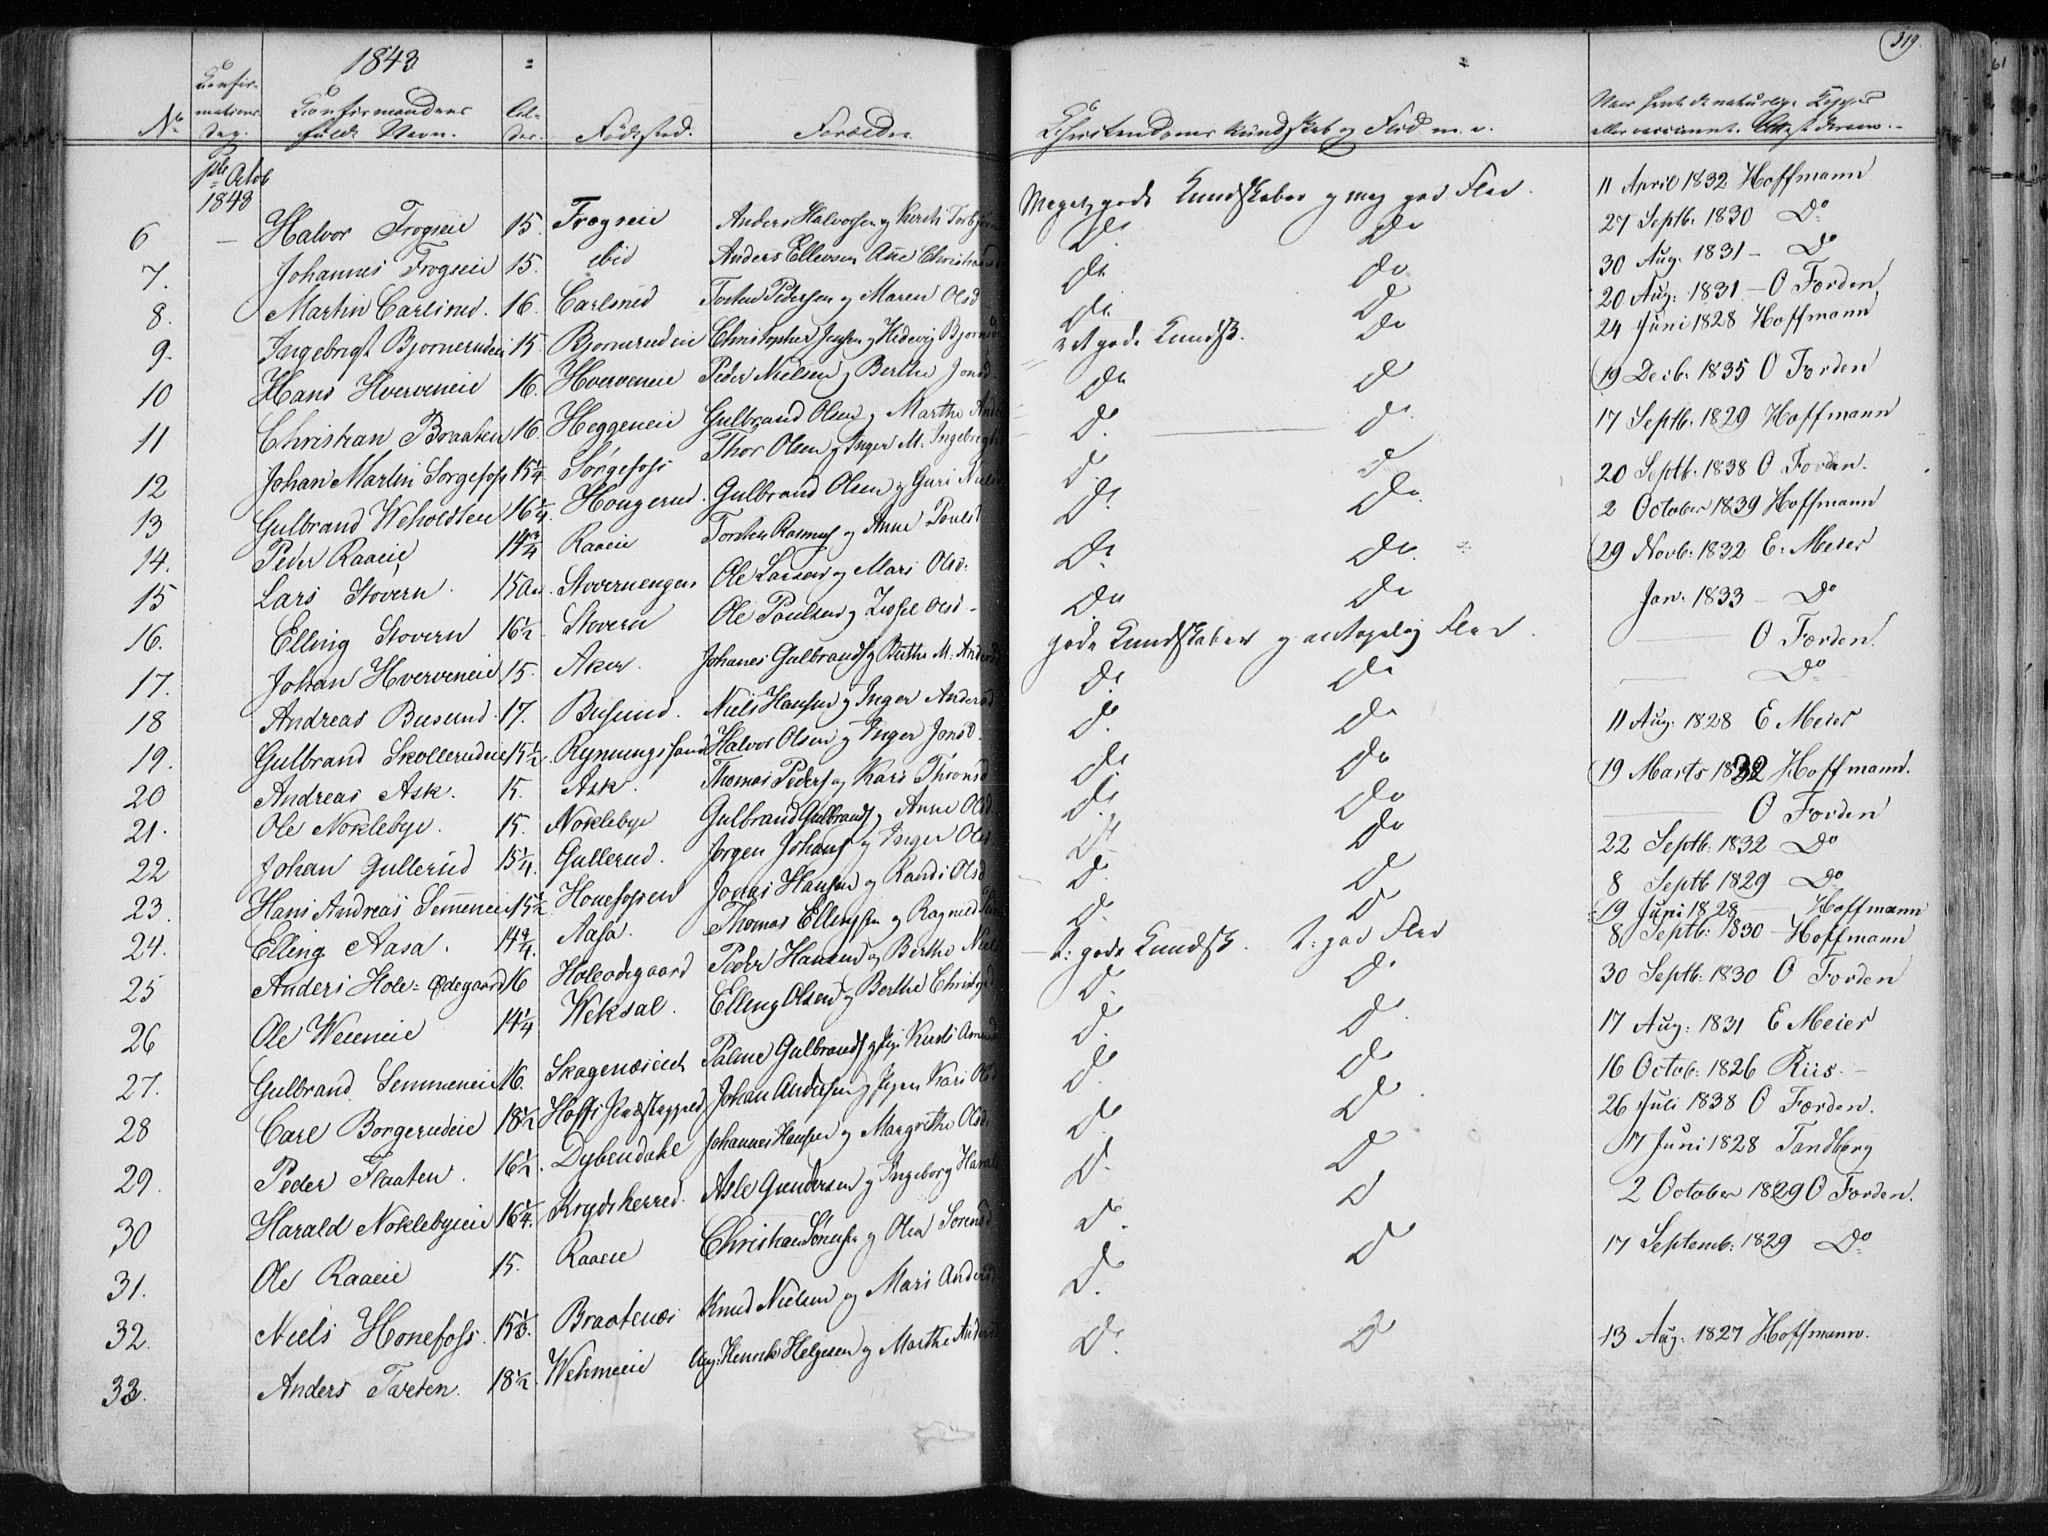 1843
319.
61
Konfir-
mations
Dag.
No
Konfirmandens
fulde Navn.
Al-
der.
Fødested.
Forældre
Christendoms Kundskab og Flid m. v.
Naar havt de naturlige Kopper
eller vaccineret. Attest derom.
1ste Octob
1843
6 – Halvor Frogseie 15. Frogseie Anders Halvorsen og Kirsti Torbjørns Meget gode Kundskaber og meg god Flid. 11 April 1832 Hoffmann
7. Johannes Frogseie 15. ibid Anders Ellevsen Ane Christiansd Do Do 27 Septb. 1830 Do
8. Martin Carlsrud. 16. Carlsrud Torsten Pedersen og Maren Olsd Do Do 30 Aug. 1831 – Do
9. Ingebrigt Bjornerudeie 15 Bjornerudeie Christopher Jensen og Hedevig Bjornsd Do Do 20 Aug: 1831 – O Førden
10 Hans Hverveneie 16. Hverveneie Peder Nielsen og Berthe Jonsd ret gode Kundsk. Do 24 Juni 1828 Hoffmann
11 Christian Braaten 16. Heggeneie Gulbrand Olsen og Marthe And Do Do 19 Decb. 1835 O Førden
12 Johan Martin Sørgefoss 15 1/4 Sørgefoss Thor Olsen og Inger M. Ingebrigts Do Do 17 Septb. 1829 Hoffmann
13 Gulbrand Weholdten 16 1/4 Hougerud. Gulbrand Olsen og Guri Niels Do Do 20 Septb. 1838 O Førden.
14. Peder Raaeie 14 3/4 Raaeie Torsten Rasmus og Anne Poulsd Do Do 2 October 1839 Hoffmann
15 Lars Stovern. 15 Stovernengen Ole Larsen og Mari Olsd. Do Do 29 Novb. 1832 E. Meier
16. Elling Stovern 16 1/2 Stovern Ole Poulsen og Olsd – Do Do Jan. 1833 – Do
17. Johan Hverveneie 15. Aker. Johanes Gulbrands og Berthe M. Andersd gode Kundskaber og antagelig Flid. O Førden.
18 Andreas Busund. 17. Busund. Niels Hansen og Inger Andersd Do Do Do
19. Gulbrand Skollerudeie 15 1/2 Rynningssand Halvor Olsen og Inger Jonsd. Do Do 11 Aug. 1828 E Meier
20 Andreas Ask. 15. Ask. Thomas Peders og Kari Thronsd Do Do 19 Marts 1832 Hoffmann.
21. Ole Noklebye. 15. Noklebye Gulbrand Gulbrands og Anne Olsd. Do Do O Førden
22 Johan Gullerud 15 1/4. Gullerud. Jorgen Johans og Inger Olsd Do Do 22 Septb. 1832 Do
23. Hans Andreas Semeneie 15 1/2 Honefossen Jonas Hansen og Randi Olsd Do Do 8 Septb 1829 Do
24. Elling Aasa. 14 3/4. Aasa. Thomas Ellingsen og Ragnild Do Do 19 Juni 1828 Hoffmann
25 Anders Hole-Ødegaard 16 Holeødegaard Peder Hansen og Berthe Niels t: gode Kundsk. t: god Flid 8 Septb. 1830 – Hoffmann
26 Ole Weieneie 14 1/4 Weksal. Elling Olsen og Berthe Christophd Do Do 30 Septb: 1830 O Førden
27. Gulbrand Semmeneie 16. Skagenæseiet Palme Gulbrands og Pige Kirsti Amunds Do Do 17 Aug: 1831 E Meier
28 Carl Borgerudeie 18 1/2 Johan Andersen og Pigen Kari Olsd Do Do 16 Octob: 1826 Riis. –
29. Peder Flaaten. 16 1/2. Dybendahl Johannes Hansen og Margrethe Olsd. Do Do 26 Juli 1838 O Førden.
30 Harald Noklebyeie 16 1/4. Krydsherred. Asle Gundersen og Ingeborg Harals Do Do 17 Juni 1828 Tandberg
31. Ole Raaeie 15. Raaeie Christian Sørensen og Olea Sorensd Do Do 2 October 1829 O Førden.
32. Niels Honefoss. 15 1/3. Braatenæs Knud Nielsen og Mari Andersd Do Do 17 Septemb: 1829 Do
33. Anders Tveten. 18 1/2. Wehmeeie Ung. Henrik Helgesen og Marthe Anders Do Do 13 Aug: 1827 Hoffmann.